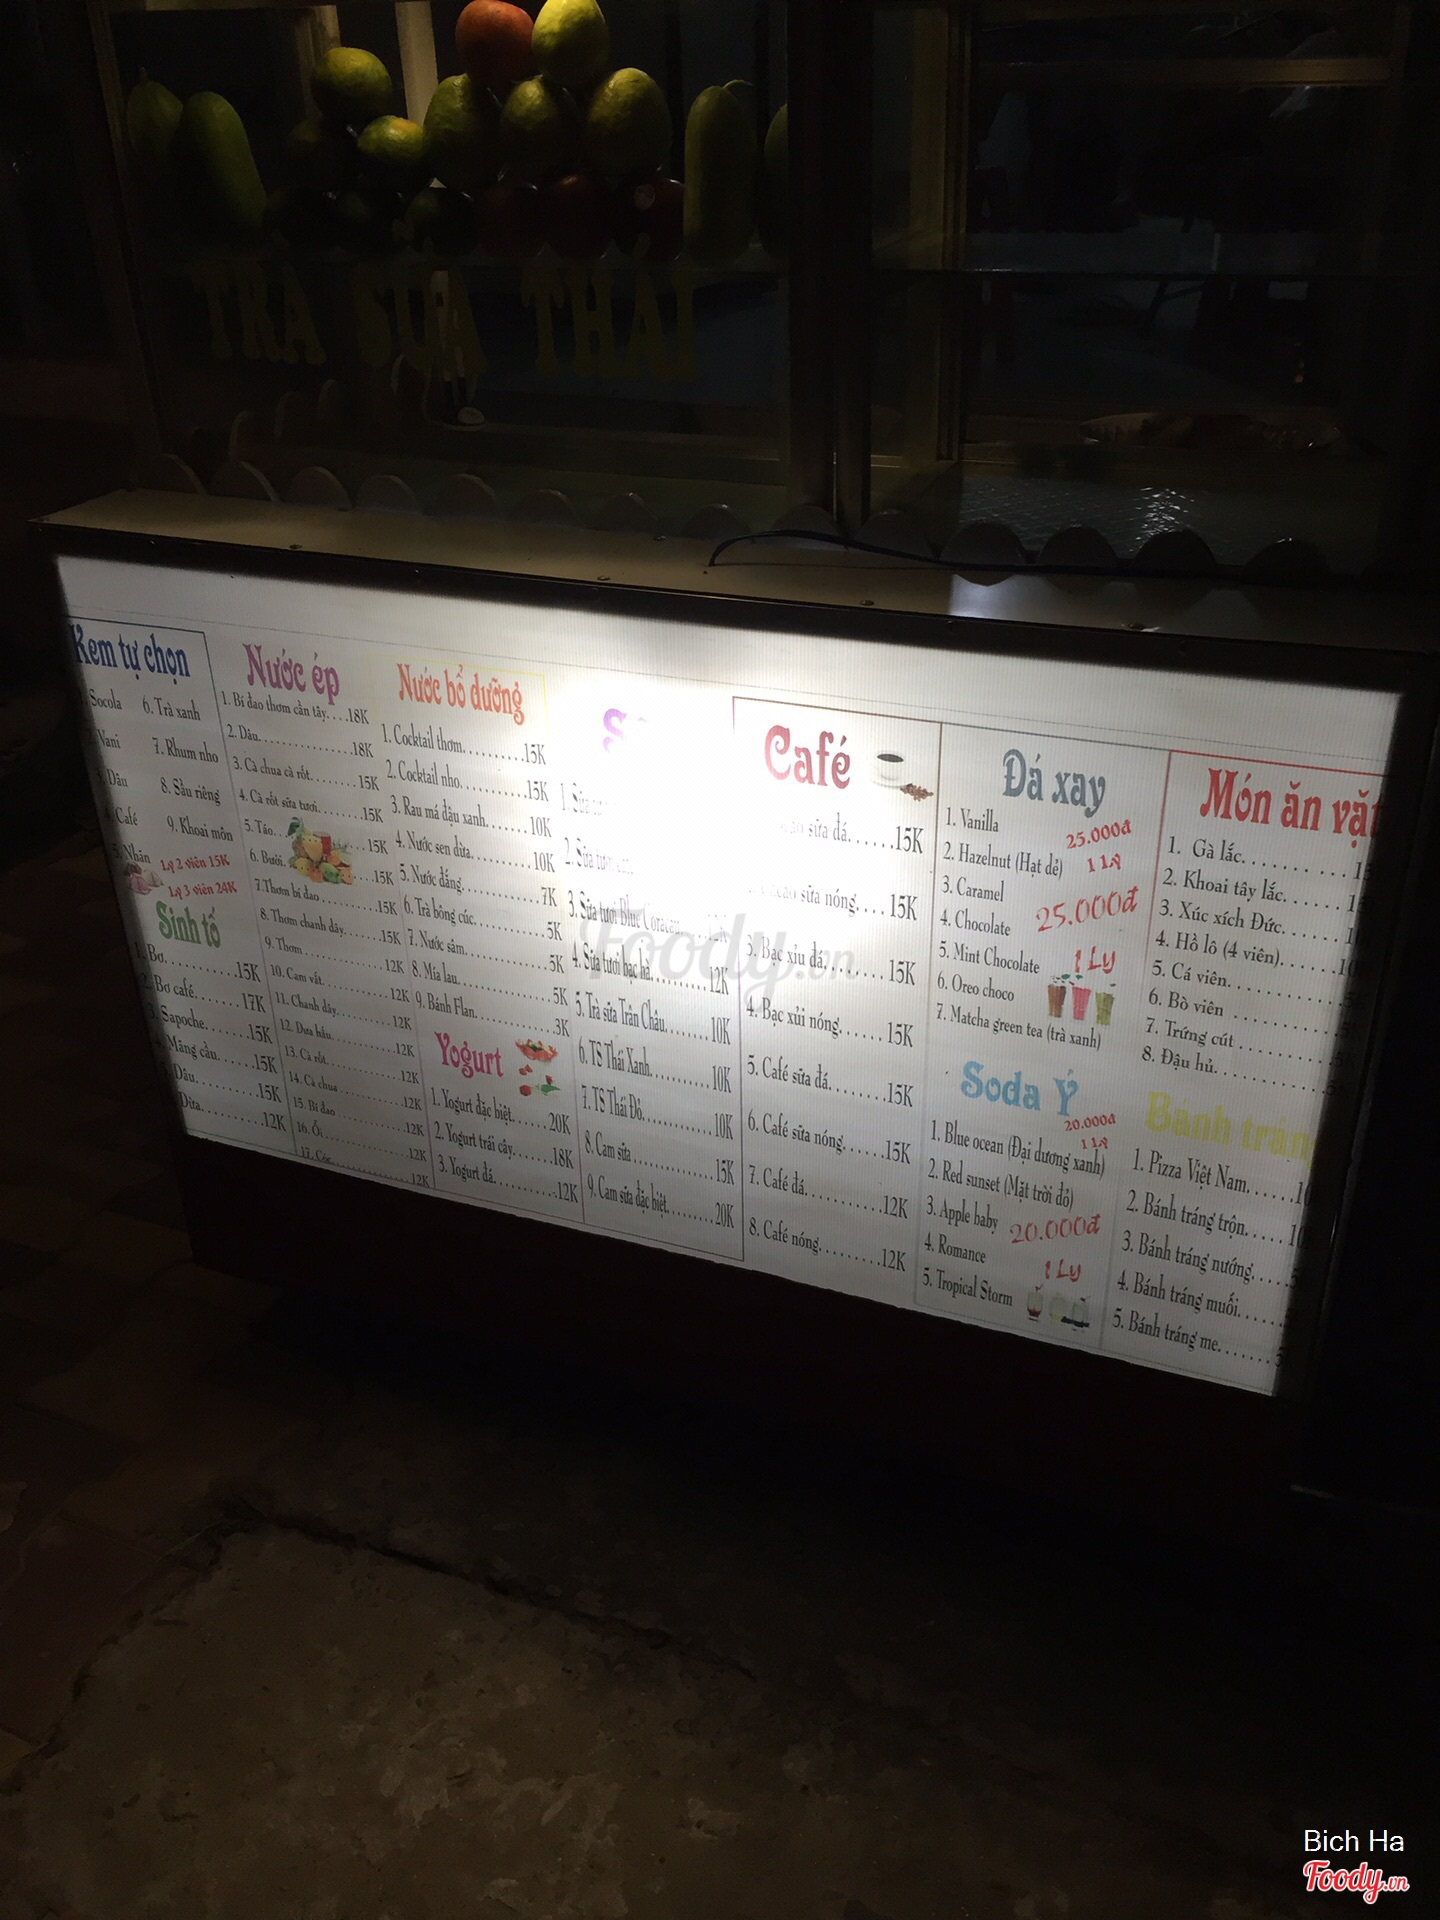 TRÀ SỮA THÁI
Kem tự chọn
Socola 6. Trà xanh
Vani 7. Rhum nho
Dâu 8. Sầu riêng
Café 9. Khoai môn
5. Nhãn
1 Ly 2 viên 15K
Ly 3 viên 24K
Sinh tố
1. Bơ.............15K
2. Bơ café........17K
3. Sapoche........15K
Mãng cầu.......15K
Dâu............15K
Dừa............12K
Nước ép
1. Bí đao thơm cần tây....18K
2. Dâu....................18K
3. Cà chua cà rốt.........15K
4. Cà rốt sữa tươi........15K
5. Táo....................15K
6. Bưởi...................15K
7. Thơm bí đao............15K
8. Thơm chanh dây.........15K
9. Thơm...................12K
10. Cam vắt...............12K
11. Chanh dây.............12K
12. Dưa hấu...............12K
13. Cà rốt................12K
14. Cà chua...............12K
15. Bí đao................12K
16. Ổi....................12K
17. Cóc...................12K
Nước bổ dưỡng
1. Cocktail thơm.........15K
2. Cocktail nho..........15K
3. Rau má đậu xanh.......10K
4. Nước sen dừa..........10K
5. Nước đắng.............7K
6. Trà bông cúc..........5K
7. Nước sâm..............5K
8. Mía lau...............5K
9. Bánh Flan.............3K
Yogurt
1. Yogurt đặc biệt......20K
2. Yogurt trái cây......18K
3. Yogurt đá............12K
1. Sữa
2. Sữa tươi
3. Sữa tươi Blue Coracau....12K
4. Sữa tươi bạc hà.........12K
5. Trà sữa Trân Châu.......10K
6. TS Thái Xanh............10K
7. TS Thái Đỏ..............10K
8. Cam sữa.................15K
9. Cam sữa đặc biệt........20K
Café
sữa đá.......15K
sữa nóng....15K
3. Bạc xỉu đá........15K
4. Bạc xủi nóng......15K
5. Café sữa đá.......15K
6. Café sữa nóng.....15K
7. Café đá...........12K
8. Café nóng.........12K
Đá xay
1. Vanilla
2. Hazelnut (Hạt dẻ)
3. Caramel
4. Chocolate
5. Mint Chocolate
6. Oreo choco
7. Matcha green tea (trà xanh)
25.000đ
1 Ly
25.000đ
1 Ly
Soda Ý
20.000đ
1 Ly
1. Blue ocean (Đại dương xanh)
2. Red sunset (Mặt trời đỏ)
3. Apple baby
4. Romance
5. Tropical Storm
20.000đ
1 Ly
Món ăn vặt
1. Gà lắc............
2. Khoai tây lắc.....
3. Xúc xích Đức......
4. Hồ lô (4 viên)....
5. Cá viên...........
6. Bò viên...........
7. Trứng cút.........
8. Đậu hủ............
Bánh tráng
1. Pizza Việt Nam......
2. Bánh tráng trộn.....
3. Bánh tráng nướng....
4. Bánh tráng muối.....
5. Bánh tráng me.......
Foody.vn
Bich Ha
Foody.vn